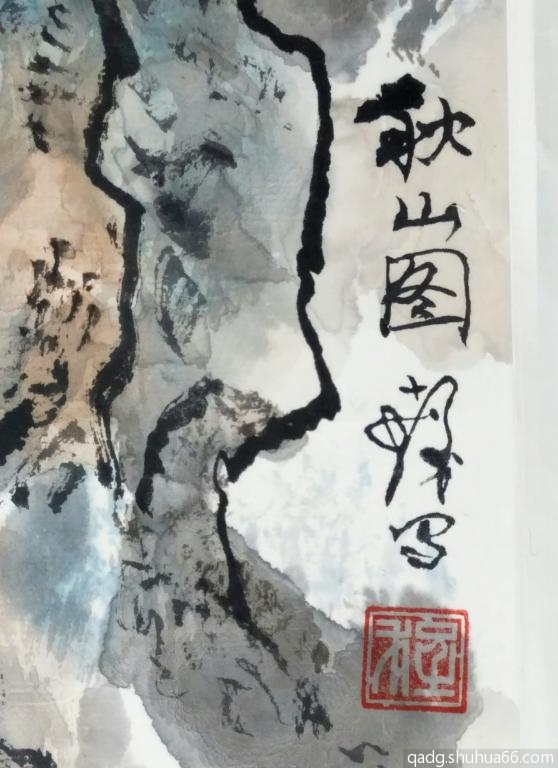 秋山图
写
qadg.shuhua66.com